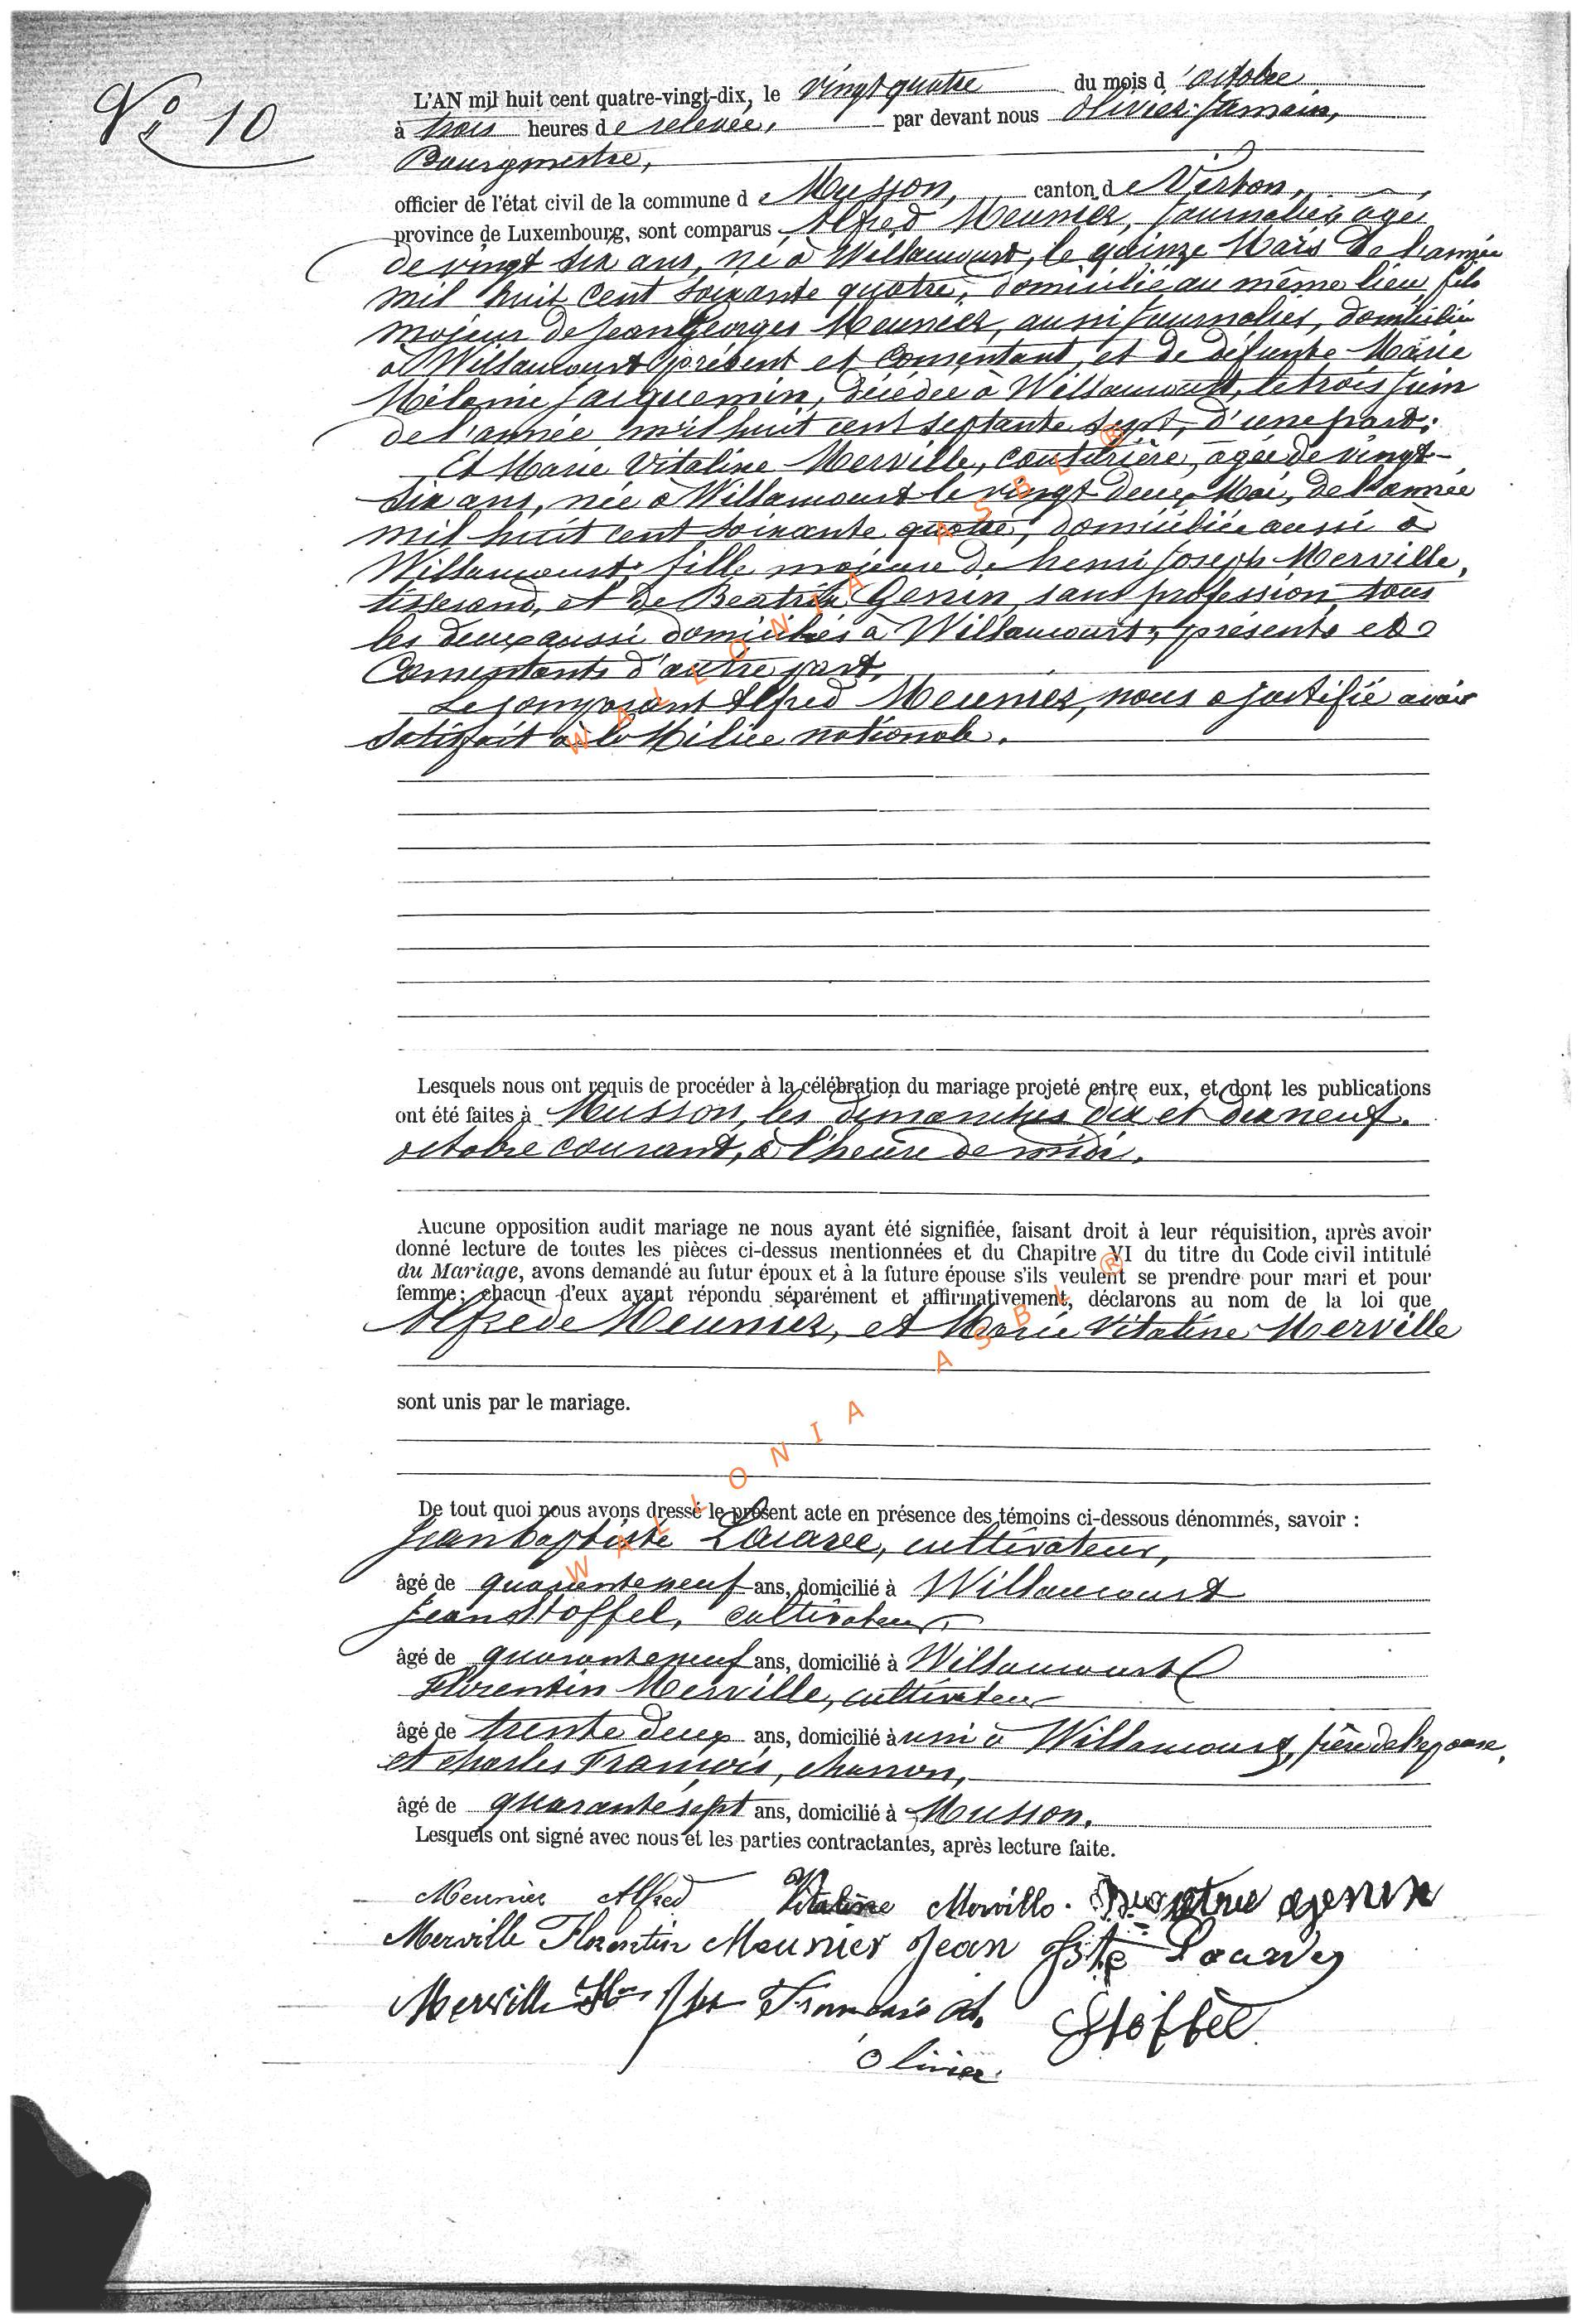 No 10
L'AN mil huit cent quatre-vingt-dix, le vingt quatre du mois d'octobre
à trois heures de relevée, par devant nous Olivier Jamain,
Bourgmestre,
officier de l'état civil de la commune de Musson, canton de Virton,
province de Luxembourg, sont comparus Alfred Meunier, journalier, âgé
de vingt six ans, né à Willancourt, le quinze Mars de l'année
mil huit cent soixante quatre, domicilié au même lieu, fils
majeur de Jean Georges Meunier, aussi journalier, domicilié
à Willancourt présent et consentant, et de défunte Marie
Mélanie Jacquemin, décédée à Willancourt, le trois Juin
de l'année mil huit cent septante sept, d'une part;
Et Marie Vitaline Merville, couturière, âgée de vingt-
six ans, née à Willancourt le vingt deux Mai, de l'année
mil huit cent soixante quatre, domiciliée aussi à
Willancourt, fille majeure de henri Joseph Merville,
tisserand, et de Genin, sans profession, tous
les deux aussi domiciliés à Willancourt, présents et
consentants d'autre part.
Le comparant Alfred Meunier, nous a justifié avoir
satisfait à la Milice nationale.
Lesquels nous ont requis de procéder à la célébration du mariage projeté entre eux, et dont les publications
ont été faites à Musson, les dimanches dix et dix neuf
octobre courant, à l'heure de midi.
Aucune opposition audit mariage ne nous ayant été signifiée, faisant droit à leur réquisition, après avoir
donné lecture de toutes les pièces ci-dessus mentionnées et du Chapitre VI du titre du Code civil intitulé
du Mariage, avons demandé au futur époux et à la future épouse s'ils veulent se prendre pour mari et pour
femme; chacun d'eux ayant répondu séparément et affirmativement, déclarons au nom de la loi que
Alfrede Meunier, et Marie Vitaline Merville
sont unis par le mariage.
De tout quoi nous avons dressé le présent acte en présence des témoins ci-dessous dénommés, savoir :
Jean baptiste cultivateur,
âgé de quarante neuf ans, domicilié à Willancourt
Jean Stoffel, cultivateur,
âgé de quarante neuf ans, domicilié à Willancourt
Florentin Merville, cultivateur
âgé de trente deux ans, domicilié à aussi à Willancourt, frère de l'epouse,
et Charles François, charron,
âgé de quarante sept ans, domicilié à Musson.
Lesquels ont signé avec nous et les parties contractantes, après lecture faite.
Meunier Alfred Vitaline Merville. genin
Merville Florentin Meunier Jean Bte
Merville Hri Jph François Ch. Stoffel
Olivier
WALLONIA ASBL ®
WALLONIA ASBL ®